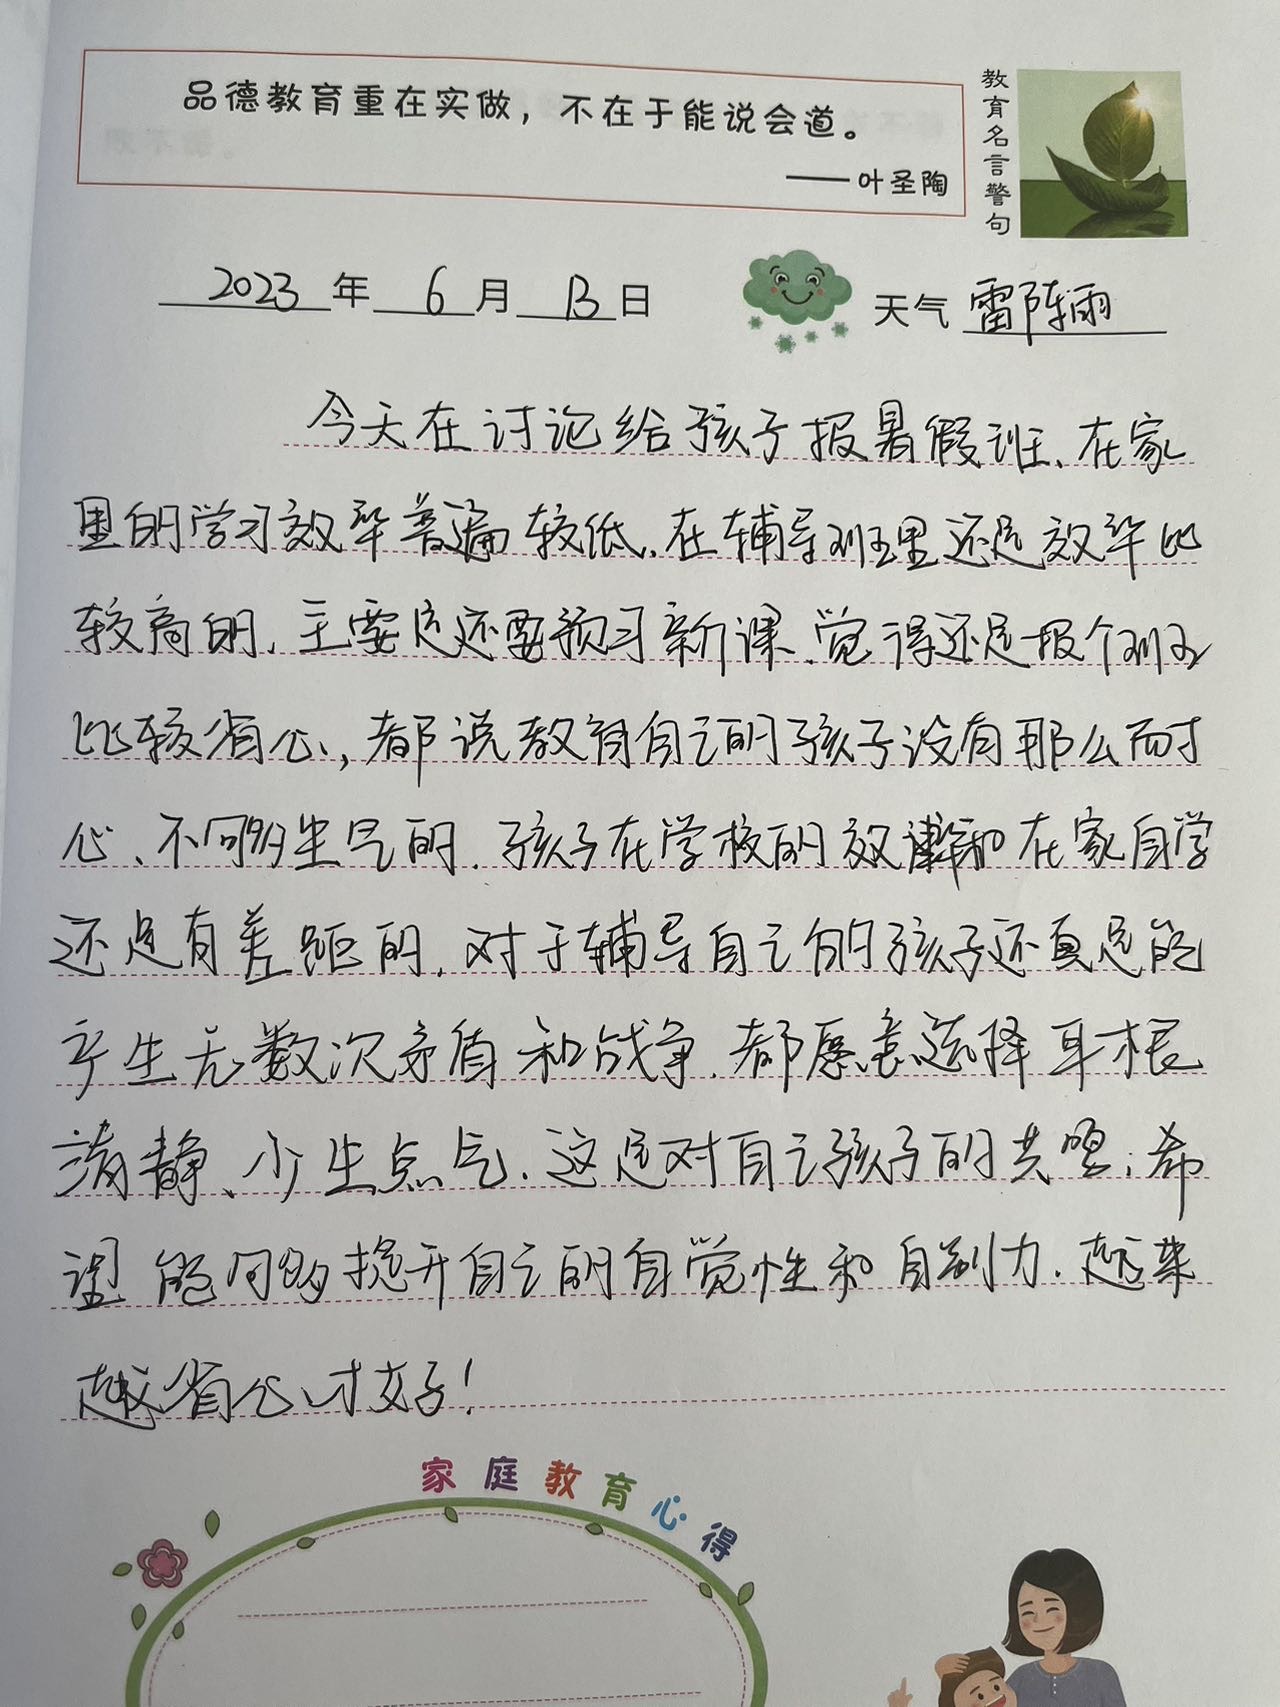 品德教育重在实做，不在于能说会道。
——叶圣陶
教育名言警句
2023年6月13日
天气 雷阵雨
今天在讨论给孩子报暑假班、在家
里的学习效率普遍较低、在辅导班里还是效率比
较高的、主要是还要预习新课、觉得还是报个班
比较省心，都说教育自己的孩子没有那么耐
心、不够生气的、孩子在学校的效率和在家自学
还是有差距的、对于辅导自己的孩子还真是能
产生无数次矛盾和战争、都愿意选择耳根
清静、少生点气、这是对自己孩子的共鸣；希
望能够提升自己的自觉性和自制力、越来
越省心才好！
家庭教育心得